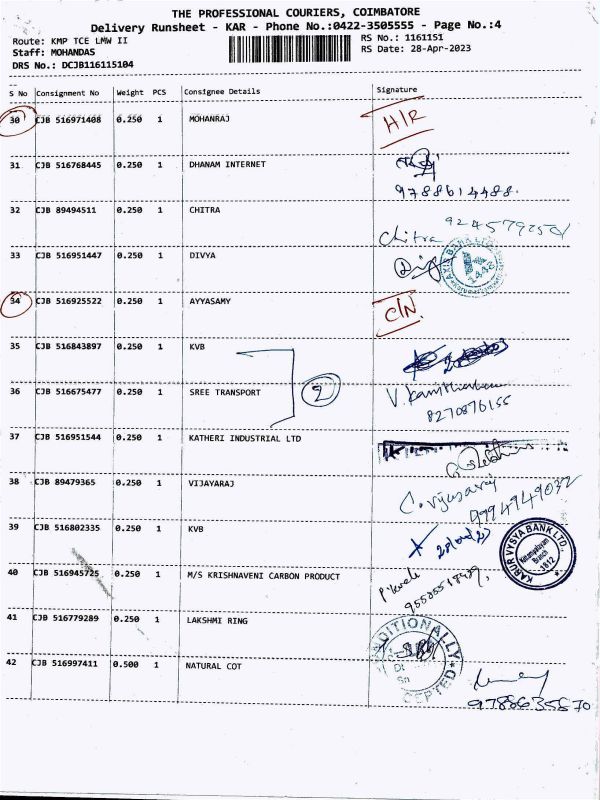 THE PROFESSIONAL COURIERS, COIMBATORE
Delivery Runsheet - KAR - Phone No.:0422-3505555 - Page No.:4
Route: KMP TCE LMW II RS No.: 1161151
Staff: MOHANDAS RS Date: 28-Apr-2023
DRS No.: DCJB116115104
S No Consignment No Weight PCS Consignee Details Signature
30 CJB 516971408 0.250 1 MOHANRAJ H/R
31 CJB 516768445 0.250 1 DHANAM INTERNET
9788614488.
32 CJB 89494511 0.250 1 CHITRA
Chitra
33 CJB 516951447 0.250 1 DIVYA
AXIS BANK LTD
34 CJB 516925522 0.250 1 AYYASAMY C/N
35 CJB 516843897 0.250 1 KVB
36 CJB 516675477 0.250 1 SREE TRANSPORT 2
8270876155
37 CJB 516951544 0.250 1 KATHERI INDUSTRIAL LTD
38 CJB 89479365 0.250 1 VIJAYARAJ
C. Vijayaraj
9994949032
39 CJB 516802335 0.250 1 KVB
KARUR VYSYA BANK LTD.,
Branch
1812
40 CJB 516945725 0.250 1 M/S KRISHNAVENI CARBON PRODUCT
41 CJB 516779289 0.250 1 LAKSHMI RING
42 CJB 516997411 0.500 1 NATURAL COT
9788635570